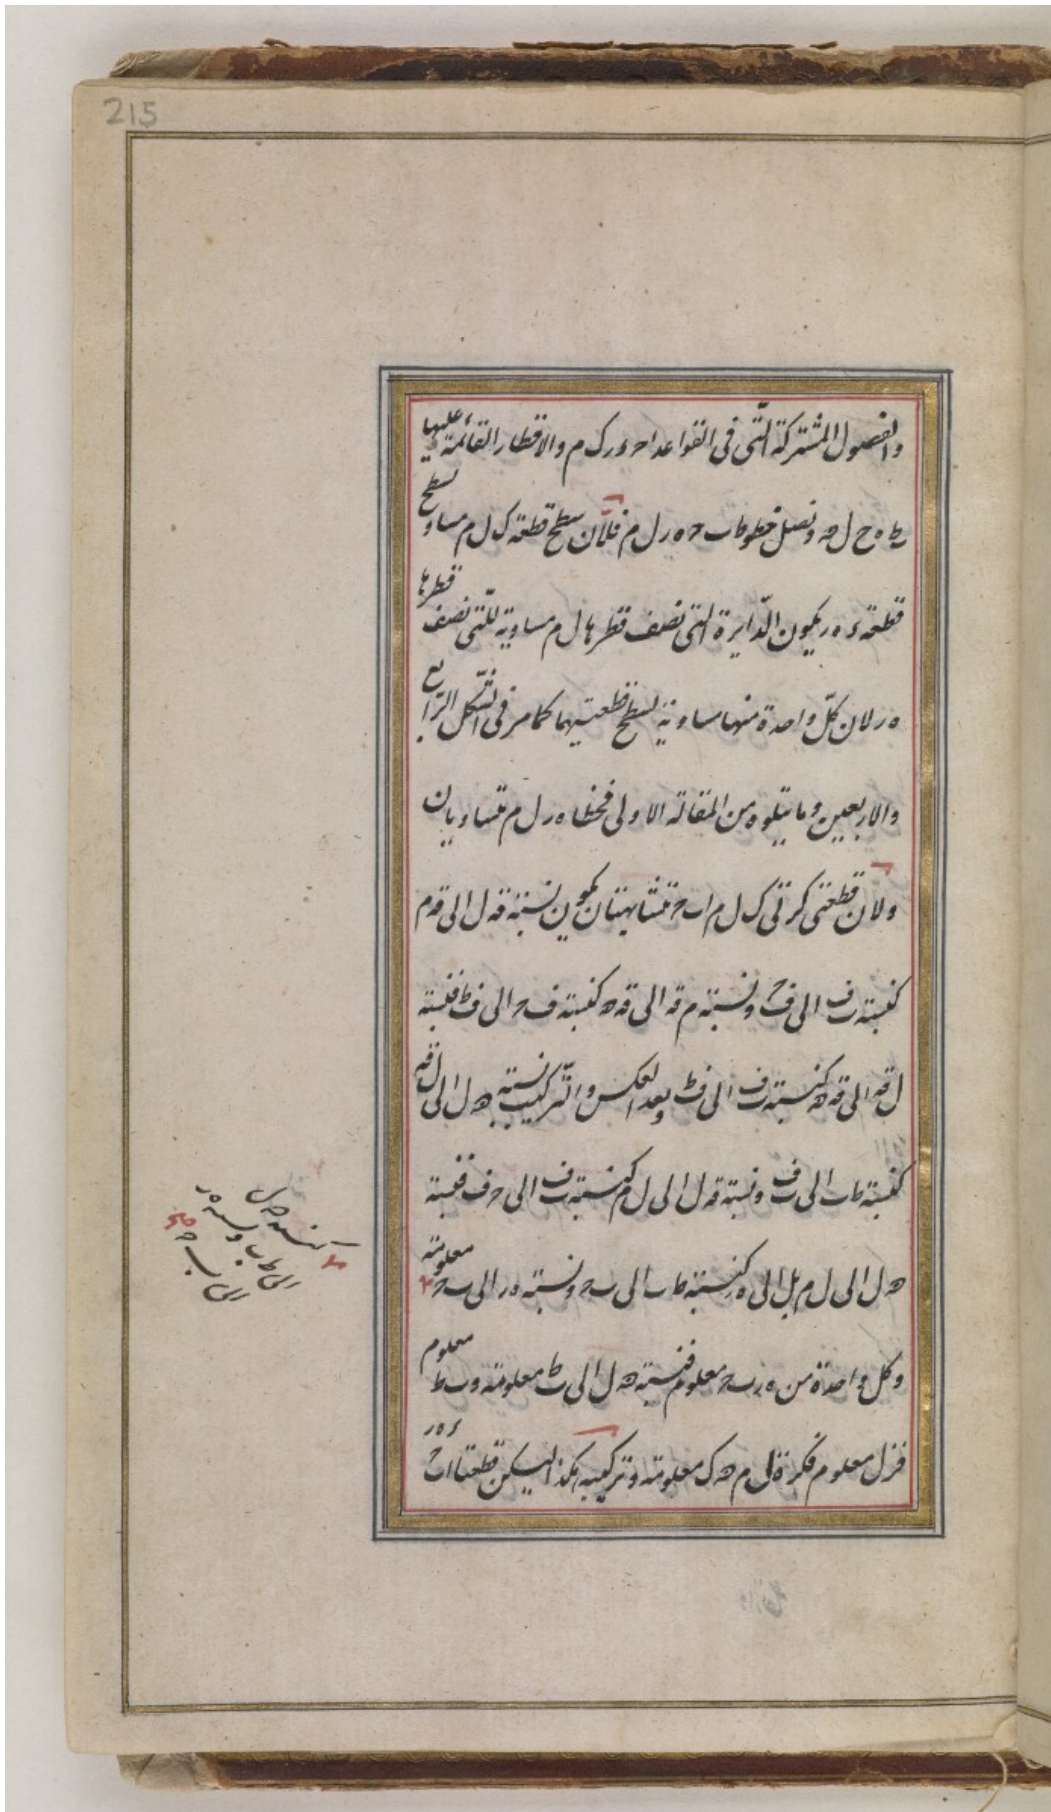 215
والفصول المشتركة الّتى فى القواعد اح ءر ک م والاقطار القائمة عليها
ط ه ح ل ص ونصل خطوط ا ب ح ه ر ل م فلأن سطح قطعة ک ل م مساو لسطح
قطعة ء ه ر يكون الدّايرة الّتى نصف قطرها ل م مساوية للّتى نصف قطرها
ه ر لان كلّ واحدة منها مساوية لسطح قطعتيهما كما مر فى الشّكل الرّابع
والاربعين وما يتلوه من المقالة الاولى فخطا ه ر ل م متساويان
ولان قطعتى كرتى ک ل م ا ب ح متشابهتان يكون نسبة قه ل الى قه م
كنسبة ب ف الى ف ح ونسبة م قه الى قه ص كنسبة ف ح الى ف ط فنسبة
ل قه الى قه ص كنسبة ب ف الى ف ط وبعد العكس والتّركيب نسبة ص ل الى ل قه
كنسبة ط ب الى ب ف ونسبة قه ل الى ل م كنسبة ب ف الى ح ف فنسبة
ص ل الى ل م بل الى ه ر كنسبة ط ب الى ب ح ونسبة ه ر الى ب ح معلومة
وكل واحدة من ه ر ب ح معلوم فنسبة ص ل الى ب ط معلومة و ب ط معلوم
فص ل معلوم فكرة ل م ص ک معلومة وتركيبه هكذا ليكن قطعتا ا ب ح ء ه ر
كنسبة ص ل
الى ط ب ونسبة ه ر
الى ب ح صح